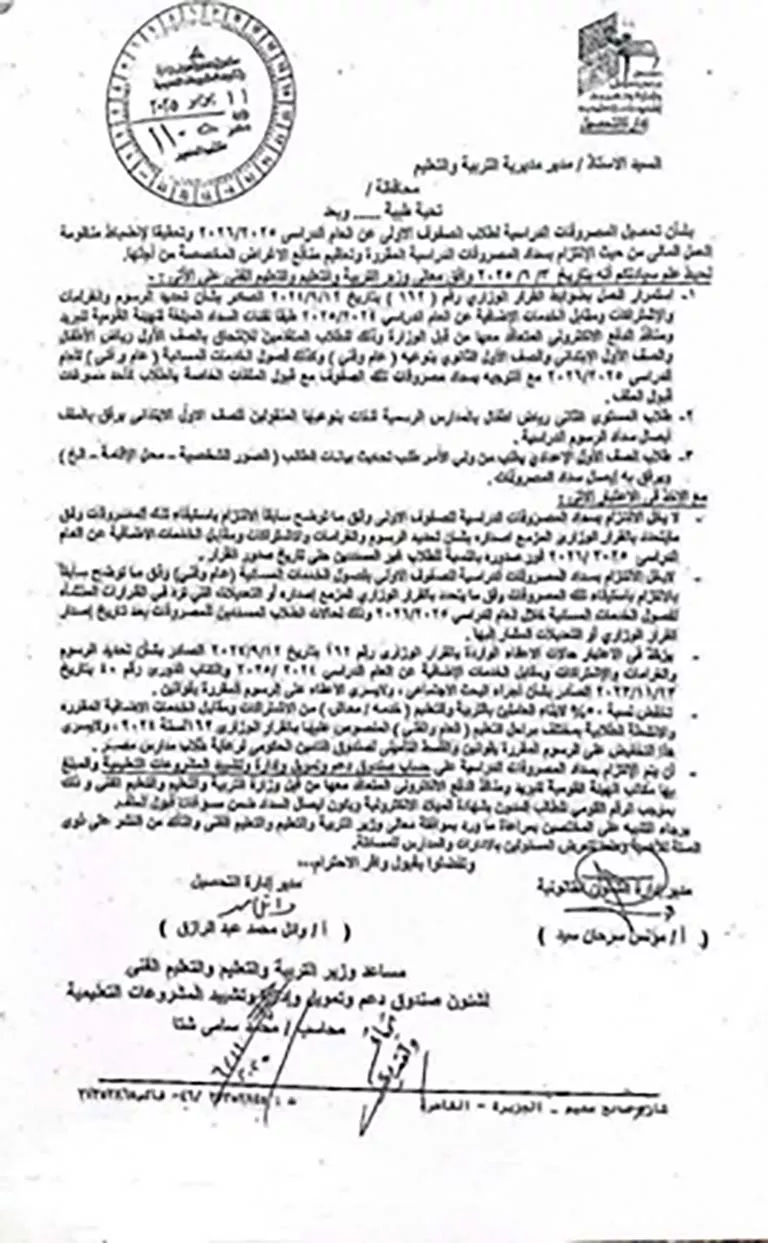 ١١ يونيو ٢٠٢٥
١١٠
إدارة التحصيل
السيد الاستاذ / مدير مديرية التربية والتعليم
محافظة /
تحية طيبة ـــــ وبعد
بشأن تحصيل المصروفات الدراسية لطلاب الصفوف الاولى عن العام الدراسى ٢٠٢٦/٢٠٢٥ وتحقيقا لإنضباط منظومة
العمل المالى من حيث الإلتزام بسداد المصروفات الدراسية المقررة وتعاليم منافع الاغراض المخصصة من أجلها.
نحيط علم سيادتكم أنه بتاريخ ٢٠٢٥/٦/٣ وافق معالى وزير التربية والتعليم والتعليم الفنى على الأتى :-
١- استمرار العمل بضوابط القرار الوزارى رقم ( ) بتاريخ الصادر بشأن تحديد الرسوم والغرامات
والإشتراكات ومقابل الخدمات الإضافية عن العام الدراسى ٢٠٢٥/٢٠٢٤ طبقا لفئات السداد المبلغة للهيئة القومية للبريد
ومنافذ الدفع الالكترونى المتعاقد معها من قبل الوزارة وذلك للطلاب المتقدمين للإلتحاق بالصف الأول رياض الأطفال
والصف الأول الإبتدائى والصف الأول الثانوى بنوعيه ( عام وفنى ) وكذلك فصول الخدمات المسائية ( عام و فنى ) للعام
الدراسى ٢٠٢٦/٢٠٢٥ مع التوجيه بسداد مصروفات تلك الصفوف مع قبول الملفات الخاصة بالطلاب كأحد مسوغات
قبول الملف .
٢- طلاب المستوى الثانى رياض اطفال بالمدارس الرسمية لغات بنوعيها المنقولين للصف الاول الابتدائى يرفق بالملف
ايصال سداد الرسوم الدراسية .
٣- طلاب الصف الأول الإعدادى يطلب من ولى الأمر طلب تحديث بيانات الطالب ( الصور الشخصية – محل الإقامة – الخ )
ويرفق به إيصال سداد المصروفات .
مع الاخذ فى الاعتبار الاتى :
- لا يخل الالتزام بسداد المصروفات الدراسية للصفوف الاولى وفق ما توضح سابقا الالتزام باستيفاء تلك المصروفات وفق
مايتحدد بالقرار الوزارى المزمع اصداره بشأن تحديد الرسوم والغرامات والاشتراكات ومقابل الخدمات الاضافية عن العام
الدراسى ٢٠٢٦/٢٠٢٥ فور صدوره بالنسبة للطلاب غير المسددين حتى تاريخ صدور القرار .
- لايخل الالتزام بسداد المصروفات الدراسية للصفوف الاولى بفصول الخدمات المسائية (عام وفنى) وفق ما توضح سابقا
بالالتزام باستيفاء تلك المصروفات وفق ما يتحدد بالقرار الوزارى المزمع إصداره أو التعديلات التى ترد فى القرارات المنشأه
لفصول الخدمات المسائية خلال العام الدراسى ٢٠٢٦/٢٠٢٥ وذلك لحالات الطلاب المسددين للمصروفات بعد تاريخ إصدار
القرار الوزارى أو التعديلات المشار إليها .
- يؤخذ فى الاعتبار حالات الاعفاء الواردة بالقرار الوزارى رقم بتاريخ ٢٠٢٤/٩/١٢ الصادر بشأن تحديد الرسوم
والغرامات والإشتراكات ومقابل الخدمات الإضافية عن العام الدراسى ٢٠٢٤ / ٢٠٢٥ والكتاب الدورى رقم ٤٠ بتاريخ
٢٠٢٣/١١/٢٣ الصادر بشأن أجراء البحث الاجتماعى ، ولايسرى الاعفاء على الرسوم المقررة بقوانين .
- تخفض نسبة ٥٠% لابناء العاملين بالتربية والتعليم ( خدمه / معاش ) من الاشتراكات ومقابل الخدمات الاضافية المقرره
والانشطة الطلابية بمختلف مراحل التعليم ( العام والفنى ) المنصوص عليها بالقرار الوزارى لسنة ٢٠٢٤ ، ولايسرى
هذا التخفيض على الرسوم المقررة بقوانين والقسط التأمينى لصندوق التامين الحكومى لرعاية طلاب مدارس مصر .
- أن يتم الالتزام بسداد المصروفات الدراسية على حساب صندوق دعم وتمويل وإدارة وتشييد المشروعات التعليمية والمبلغ
بها مكاتب الهيئة القومية للبريد ومنافذ الدفع الالكترونى المتعاقد معها من قبل وزارة التربية والتعليم والتعليم الفنى ، و ذلك
بموجب الرقم القومى للطالب المدون بشهادة الميلاد الالكترونية ويكون ايصال السداد ضمن مسوغات قبول الملف
برجاء التنبيه على المختصين بمراعاة ما ورد بموافقة معالى وزير التربية والتعليم والتعليم الفنى والتأكد من النشر على ذوى
المسئولين بالادارات والمدارس للمسائلة.
وتفضلوا بقبول وافر الاحترام،،،
مدير إدارة الشئون القانونية
مدير إدارة التحصيل
( أ / مؤنس سرحان سيد )
( أ / وائل محمد عبد الرازق )
مساعد وزير التربية والتعليم والتعليم الفنى
لشئون صندوق دعم وتمويل وإدارة وتشييد المشروعات التعليمية
محاسب / محمد سامى شتا
٢٠٢٥/٦/١١